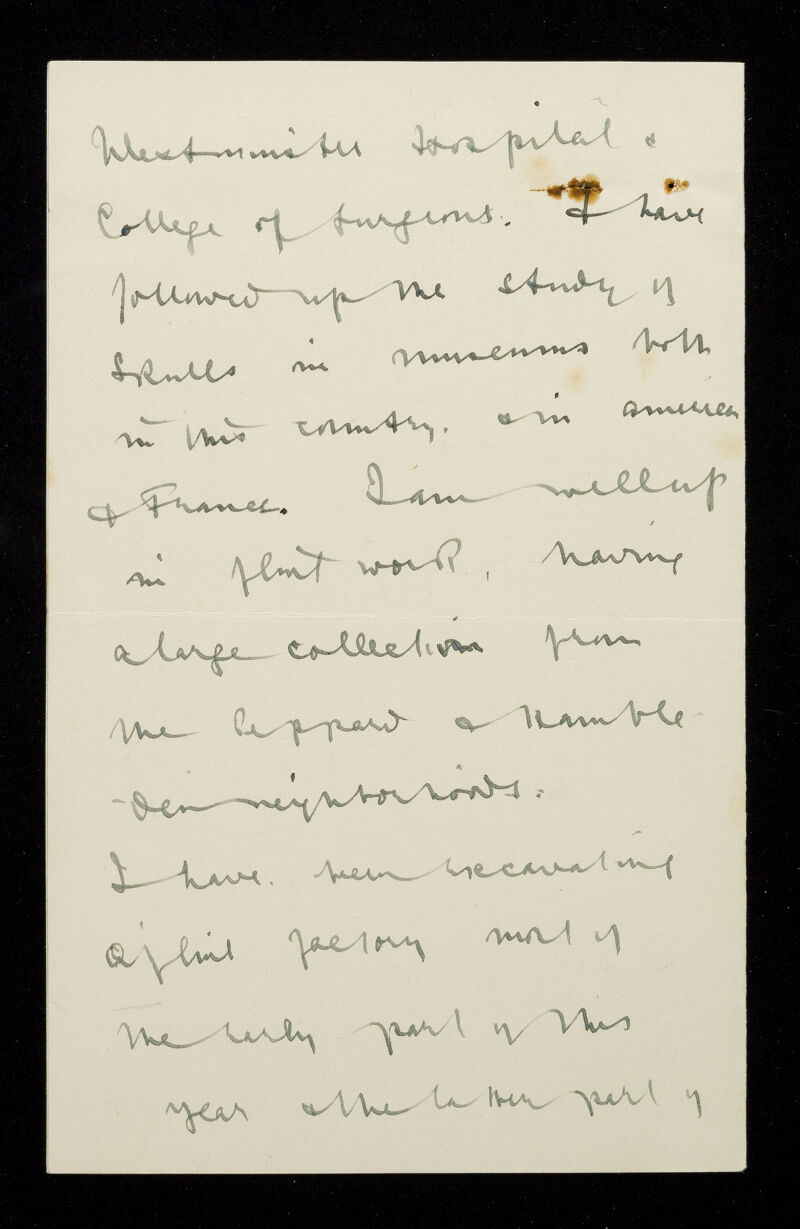 Westminster Hospital &
College of Surgeons. I have
followed up the study of
Skulls in museums both
in this country. & in america
& France. I am well up
in flint work, having
a large collection from
the Peppard & Hamble
-den neighborhoods.
I have been excavating
a flint factory most of
the early part of this
year & the latter part of